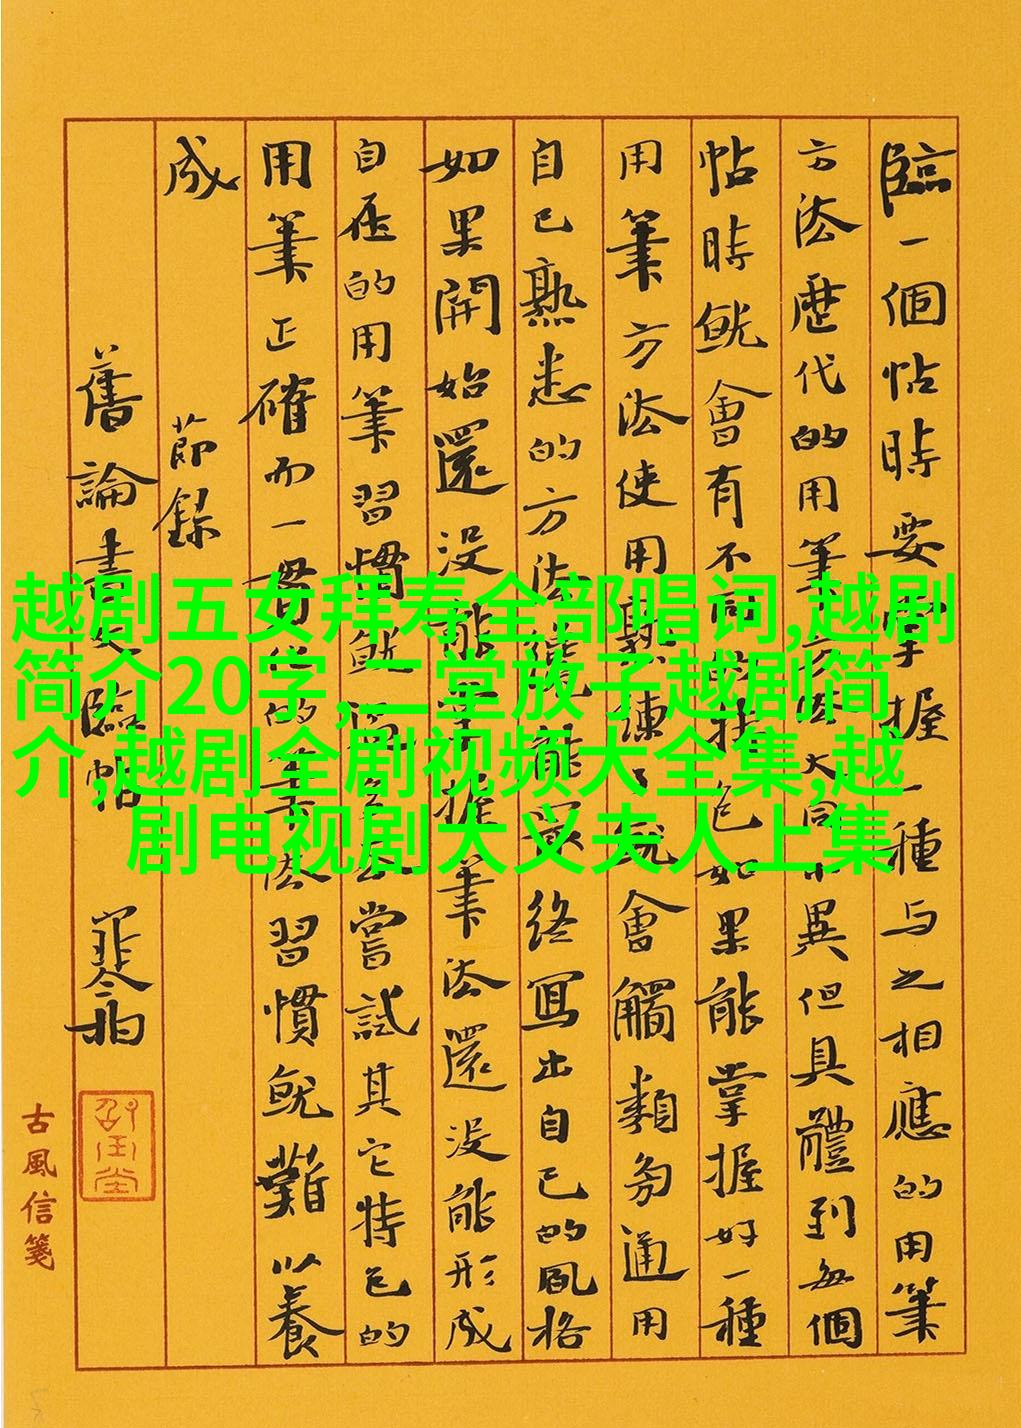 臨一個帖時要掌握一種与之相應的用筆
方法歷代的用筆方法大同小異但具體到每個
帖時就會有不同的特色如果能掌握好一種
用筆方法使用熟練了就會觸類旁通用
自己熟悉的方法纔能最終寫出自己的風格
如果開始還没能掌握筆法還没能形成
自在的用筆習慣就過多去嘗試其它特色的
用筆正確而一貫化的筆法習慣就難以養
成 節錄
舊論書文臨帖
古風信箋
越剧五女拜寿全部唱词,越剧
简介20字,二堂放子越剧简
介,越剧全剧视频大全集,越
剧电视剧大义夫人上集